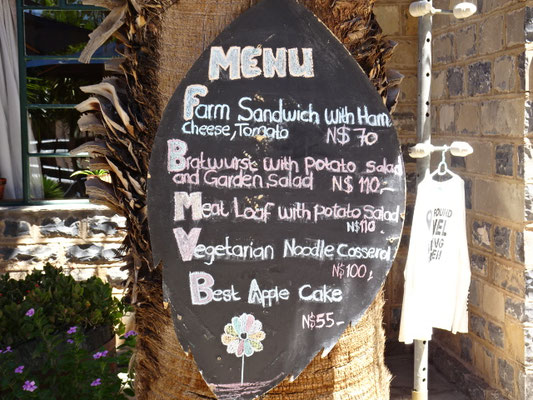 MENU
Farm Sandwich with Ham
Cheese, Tomato N$ 70
Bratwurst with potato salad
and Garden Salad N$ 110,-
Meat Loaf with potato Salad
N$ 110
Vegetarian Noodle Casserol
N$ 100,
Best Apple Cake
N$ 55.-
ROUND